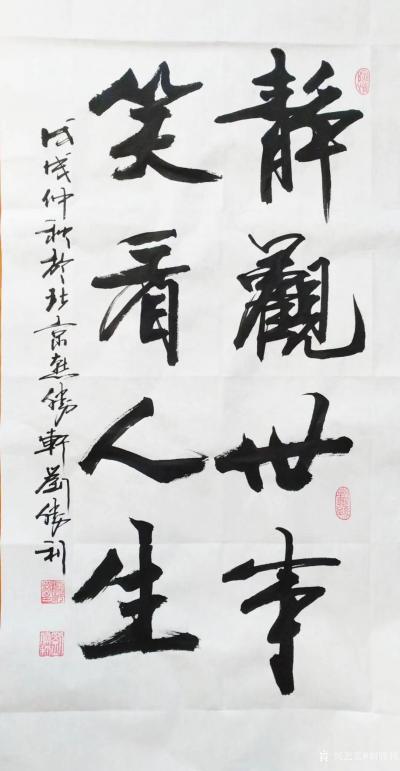 靜觀世事
笑看人生
戊戌仲秋於北京惠勝軒劉勝利